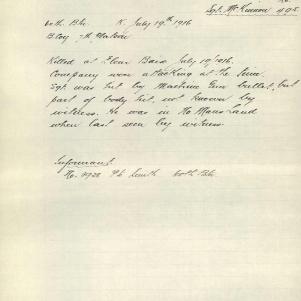 Sgt. McKinnon 495
60th Bn. K. July 19th 1916
Killed at Fleur Baix July 19/1916.
Company were attacking at the time
Sgt. was hit by Machine Gun bullet, but
part of body hit, not known by
witness. He was in No Mans Land
when last seen by witness.
Informant
No. 4928 Pte Smith 60th Bn.